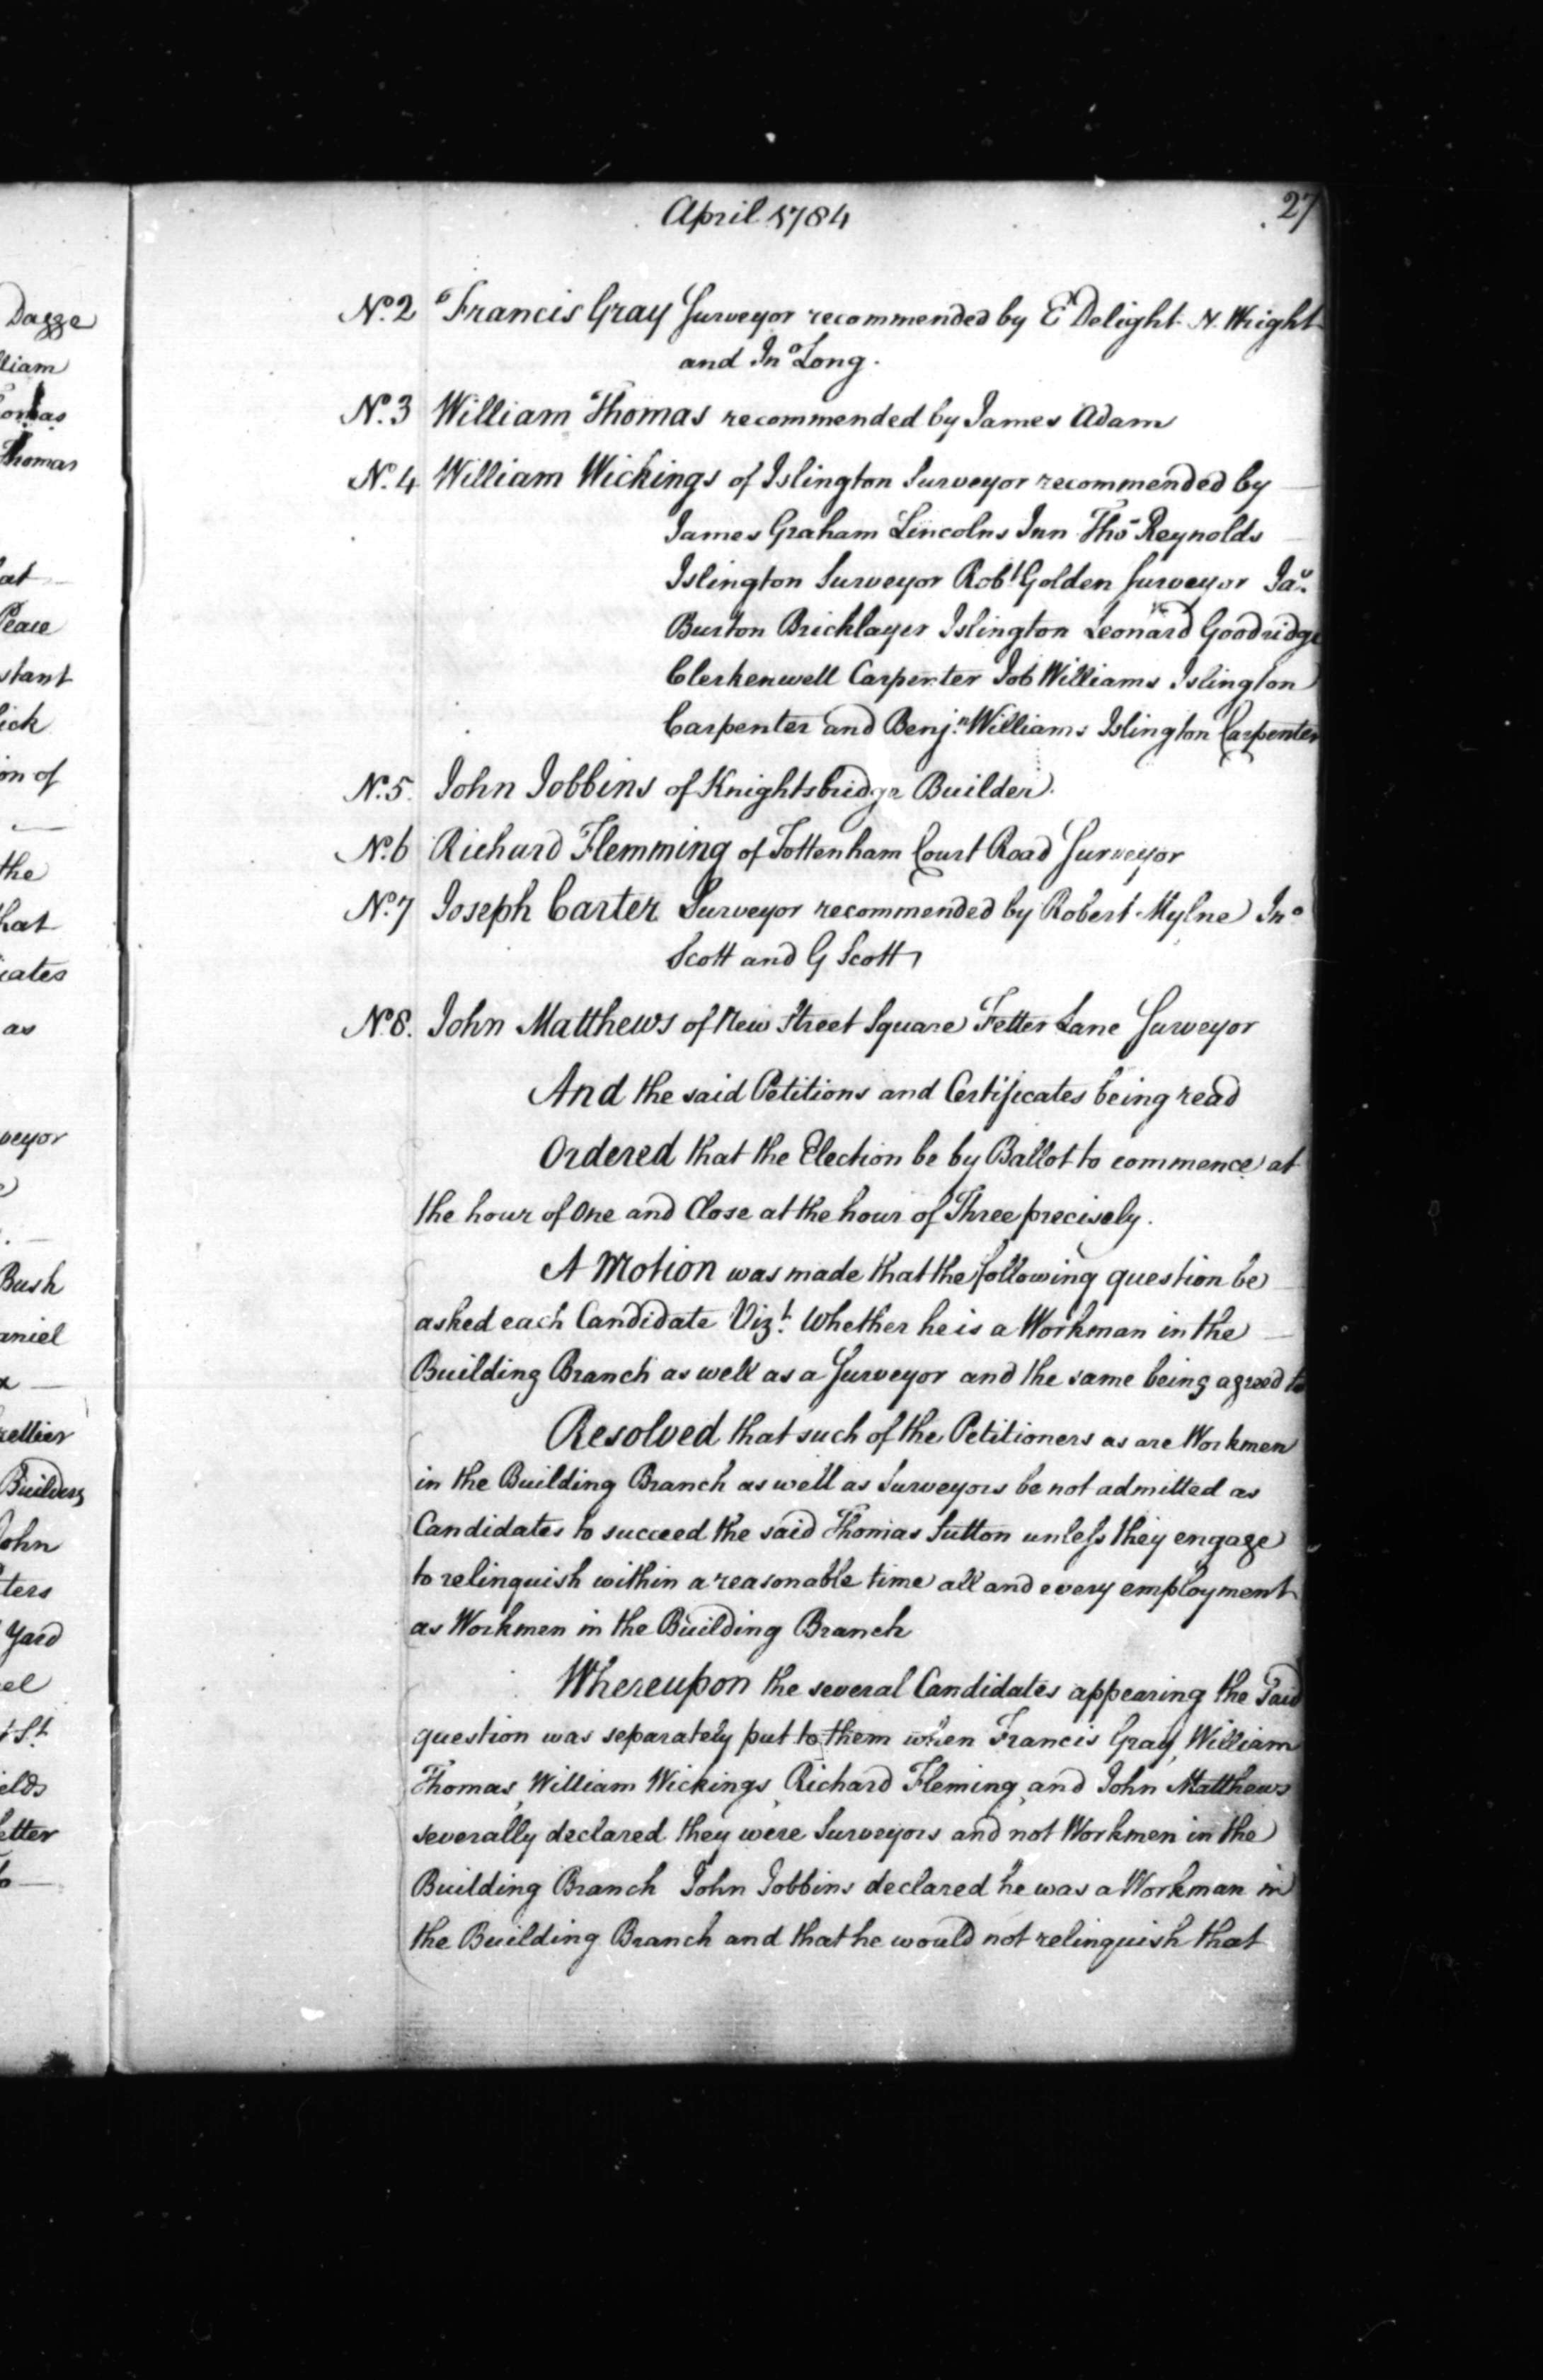 April 1784
27
No. 2 Francis Gray Surveyor recommended by E Delight N. Wright
and Jno Long.
No. 3 William Thomas recommended by James Adam
No. 4 William Wickings of Islington Surveyor recommended by
James Graham Lincolns Inn Thos Reynolds
Islington Surveyor Robt Golden Surveyor Jas.
Burton Bricklayer Islington Leonard Goodridge
Clerkenwell Carpenter Job Williams Islington
Carpenter and Benjn. Williams Islington Carpenter
No. 5. John Jobbins of Knightsbridge Builder.
No. 6 Richard Flemming of Tottenham Court Road Surveyor
No. 7 Joseph Carter Surveyor recommended by Robert Mylne Jno
Scott and G Scott
No. 8. John Matthews of New Street Square Fetter Lane Surveyor
And the said Petitions and Certificates being read
Ordered that the Election be by Ballot to commence at
the hour of One and Close at the hour of Three precisely.
A Motion was made that the following question be
asked each Candidate Vizt. Whether he is a Workman in the
Building Branch as well as a Surveyor and the same being agreed to
Resolved that such of the Petitioners as are Workmen
in the Building Branch as well as Surveyors be not admitted as
Candidates to succeed the said Thomas Sutton unless they engage
to relinquish within a reasonable time all and every employment
as Workmen in the Building Branch
Whereupon the several Candidates appearing the Said
question was separately put to them when Francis Gray, William
Thomas, William Wickings, Richard Fleming, and John Matthews
severally declared they were Surveyors and not Workmen in the
Building Branch John Jobbins declared he was a Workman in
the Building Branch and that he would not relinquish that
Dagge
liam
omas
Thomas
at
Pease
stant
ick
on of
the
hat
icates
as
veyor
Bush
aniel
x
rellier
Builders
John
ters
Yard
el
St
elds
etter